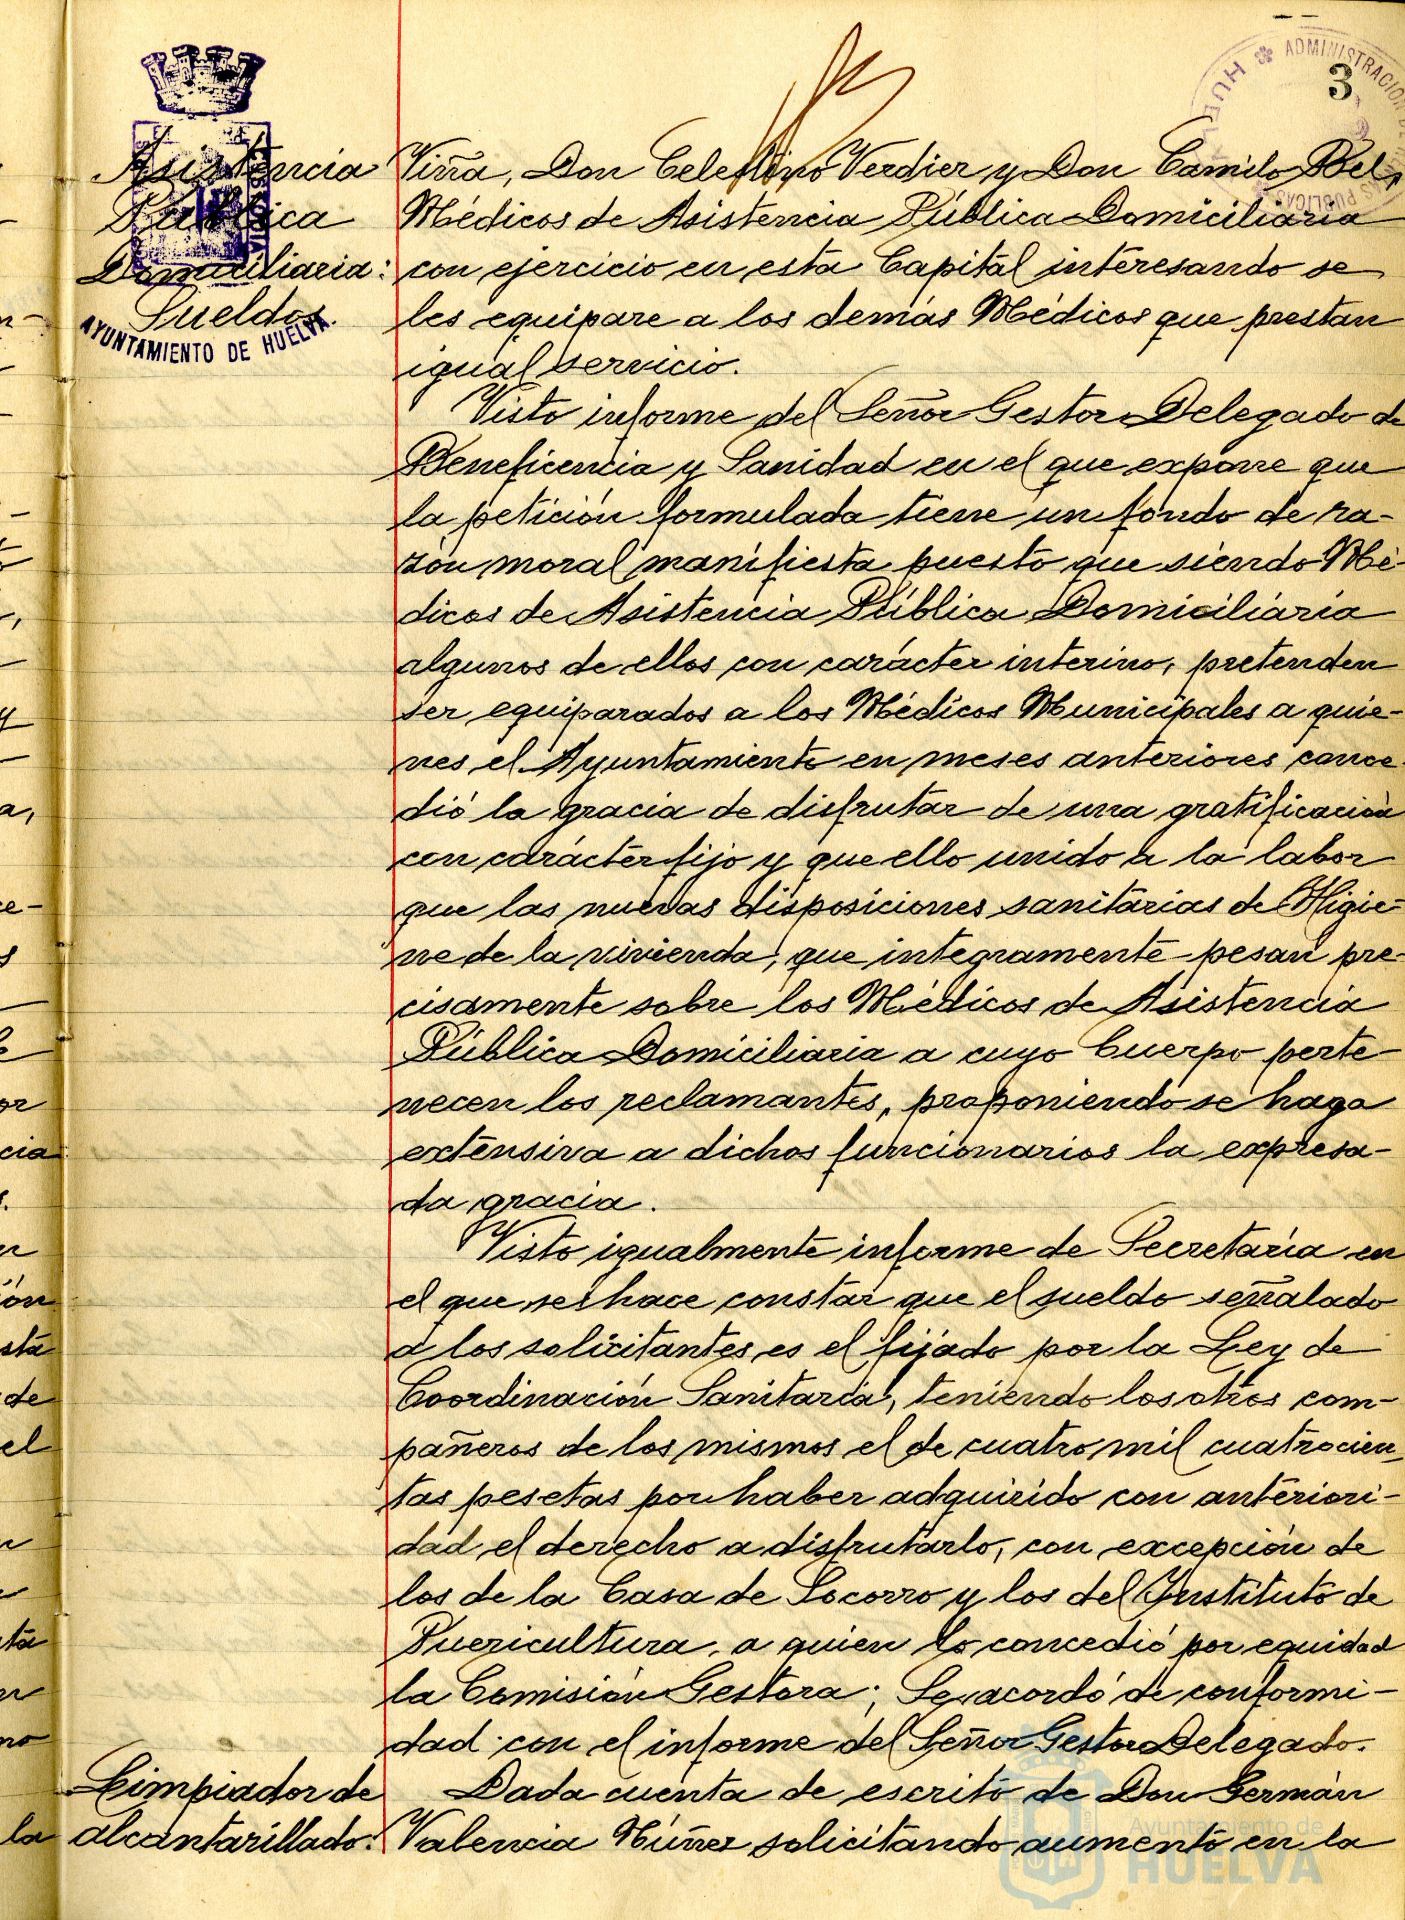 3
ADMINISTRACION DE
HUELVA
PUBLICAS
Asistencia
Pública
Domiciliaria:
Sueldos.
AYUNTAMIENTO DE HUELVA
Viña, Don Celestino Verdier y Don Camilo Bel,
Médicos de Asistencia Pública Domiciliaria
con ejercicio en esta Capital interesando se
les equipare a los demás Médicos que prestan
igual servicio.
Visto informe del Señor Gestor Delegado de
Beneficencia y Sanidad en el que expone que
la petición formulada tiene un fondo de ra-
zón moral manifiesta puesto que siendo Mé-
dicos de Asistencia Pública Domiciliaria
algunos de ellos con carácter interino, pretenden
ser equiparados a los Médicos Municipales a quie-
nes el Ayuntamiento en meses anteriores conce-
dió la gracia de disfrutar de una gratificación
con carácter fijo y que ello unido a la labor
que las nuevas disposiciones sanitarias de Higie-
ne de la vivienda, que integramente pesan pre-
cisamente sobre los Médicos de Asistencia
Pública Domiciliaria a cuyo Cuerpo perte-
necen los reclamantes, proponiendo se haga
extensiva a dichos funcionarios la expresa-
da gracia.
Visto igualmente informe de Secretaría en
el que se hace constar que el sueldo señalado
a los solicitantes es el fijado por la Ley de
Coordinación Sanitaria, teniendo los otros com-
pañeros de los mismos el de cuatro mil cuatrocien-
tas pesetas por haber adquirido con anteriori-
dad el derecho a disfrutarlo, con excepción de
los de la Casa de Socorro y los del Instituto de
Puericultura, a quien lo concedió por equidad
la Comisión Gestora; Se acordó de conformi-
dad con el informe del Señor Gestor Delegado.
Limpiador de
alcantarillado:
Dada cuenta de escrito de Don Germán
Valencia Núñez solicitando aumento en la
Ayuntamiento de
HUELVA